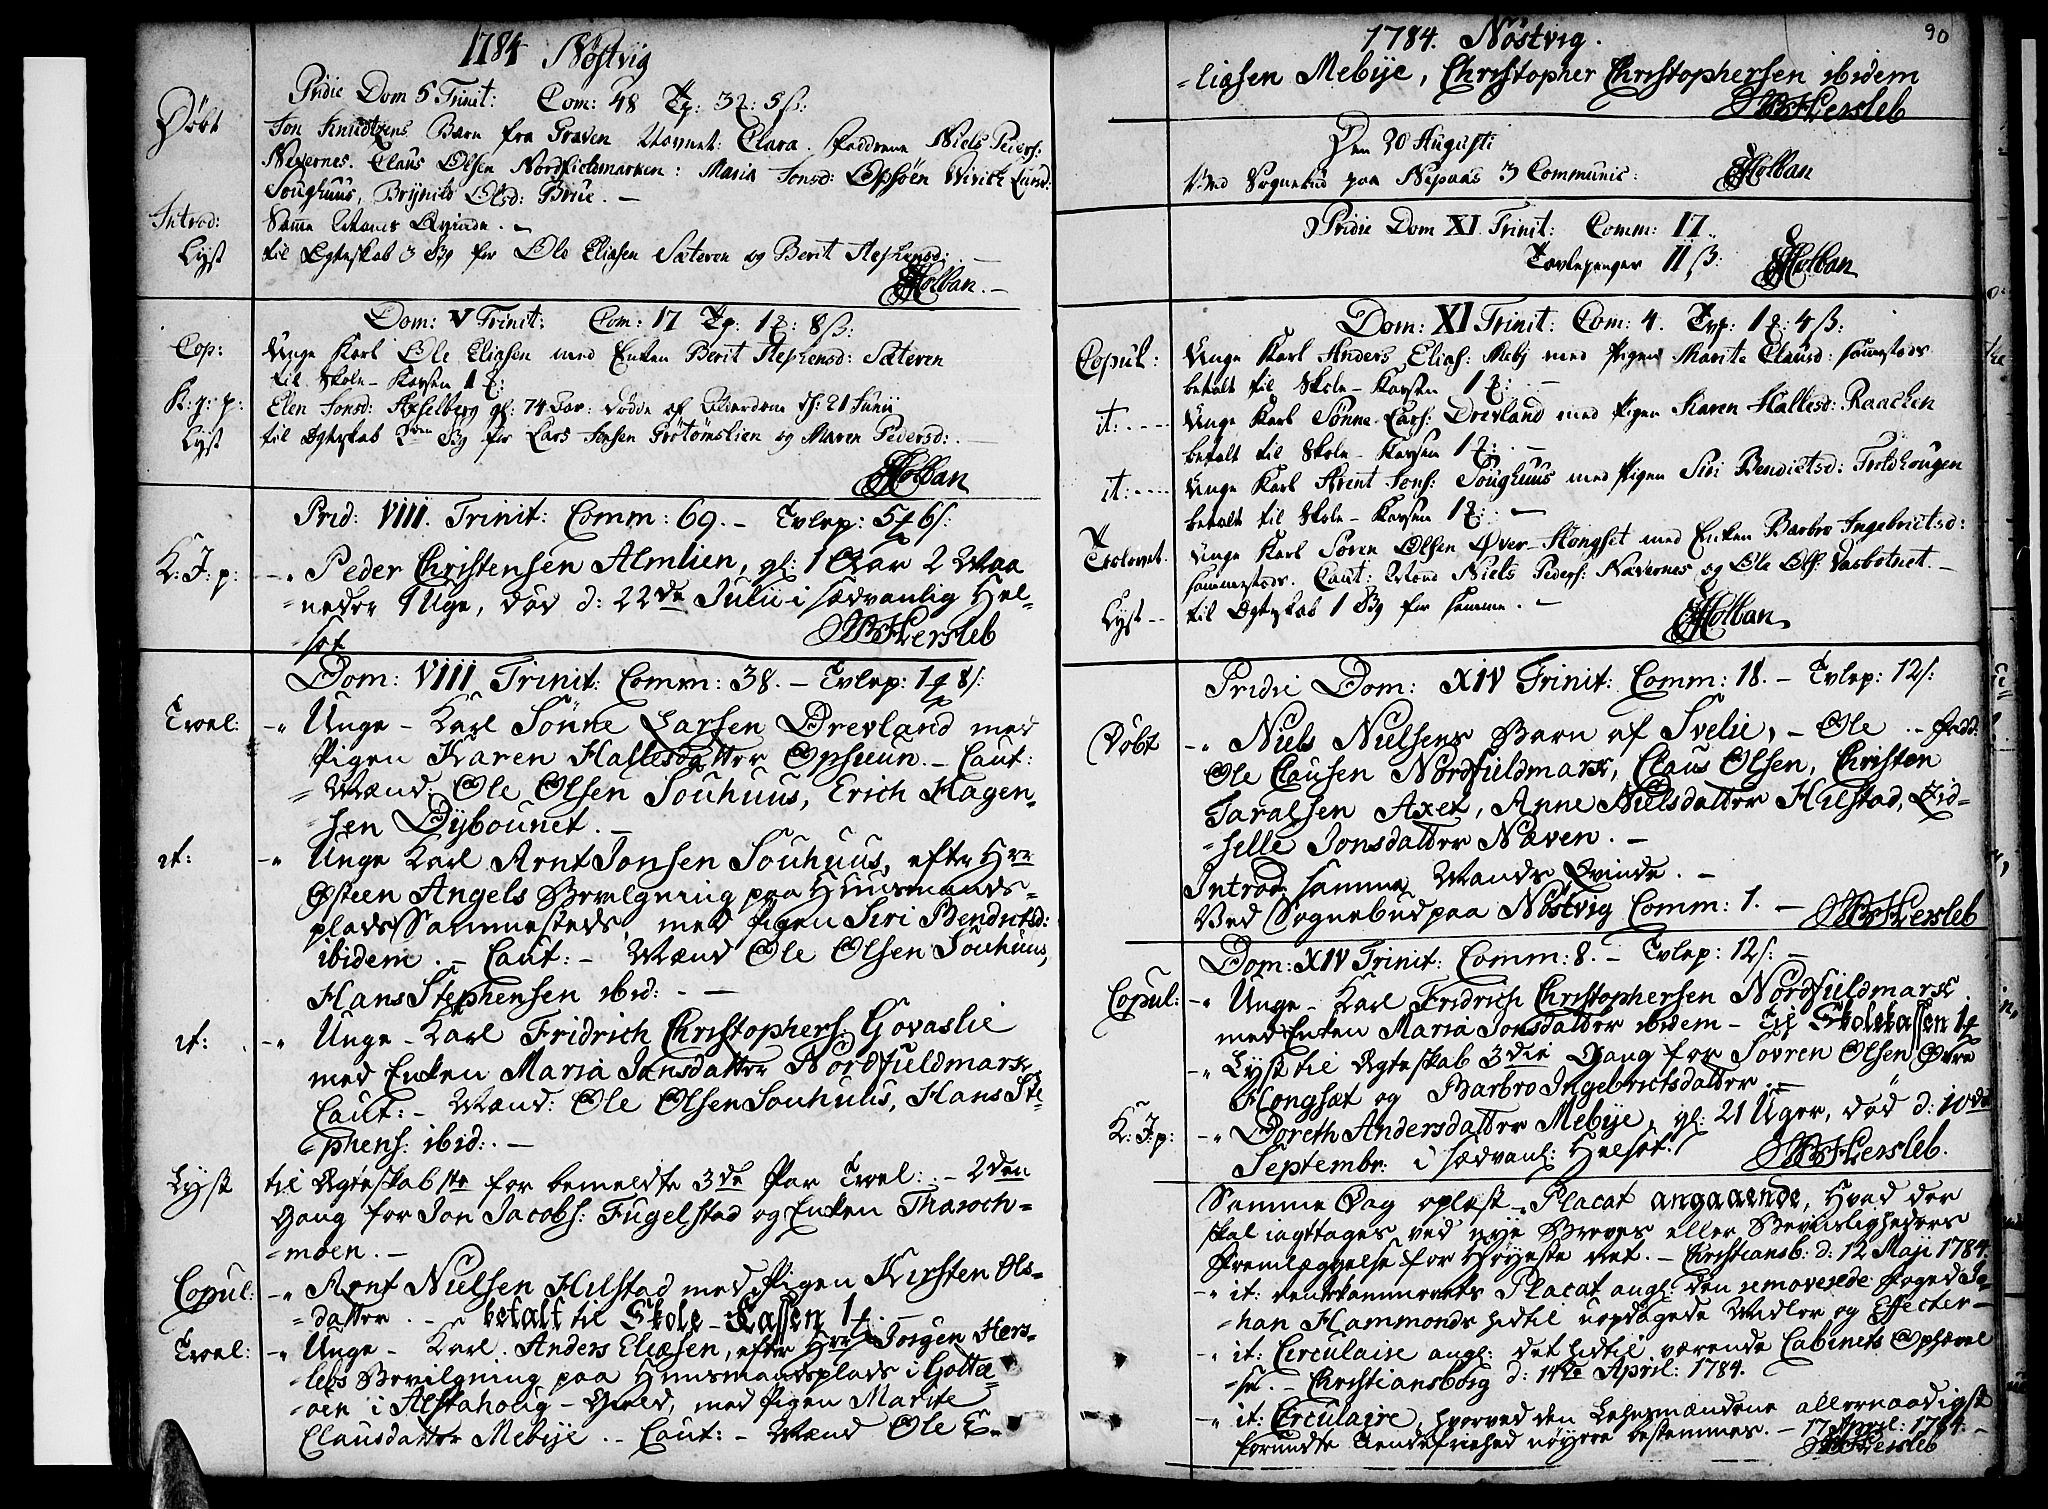 1784 Nöstvig
Pridie Dom 5 Trinit: Com: 48 Tp: 3 5ß:
Döbt
Jon Knudtzens Barn fra Graven Navnet: Clara. Faddrene Niels Peders:
Nevernes. Claus Olsen Nordfieldmarken: Maria Jonsd: Opsöen
Soughuus, Brynild Olsd: Brue. –
Introd: Samme Mands Qvinde. –
Lyst til Ægteskab 3 Gg for Ole Eliasen Sæteren og Berit Stephensd:
Holban. –
Dom: V Trinit: Com: 17 Tp: 1 8ß:
Cop: Unge Karl Ole Eliasen med Enken Berit Stephensd: Sæteren
til Skole-Kassen 1
Elen Jonsd: Axselberg gl: 74 Aar: Döde af Alderdom d: 21 Junii
Lyst til Ægteskab Gg for Lars Jensen Grötömslien og Maren Pedersd: –
Holban
Prid: VIII. Trinit: Comm: 69. – Tvlep: 5 6/:
K: J: p: – Peder Christensen Almlien, gl: 1 Aar 2 Maa
neder 1 Uge, död d: 22de Julii i sædvanlig Hel-
sot
Hersleb
Dom: VIII Trinit: Comm: 38. – Tvlep: 1 8/:
Trol: – Unge – Karl Sönne Larsen Drevland med
Pigen Karen Hallesdatter Opheun. – Caut:
Mænd: Ole Olsen Souhuus, Erich Hagen-
sen Dybounet. –
it: – Unge Karl Arnt Jonsen Souhuus, efter Hrr
Østeen Angels Bevilgning paa Huusmands-
plads Sammesteds, med Pigen Siri Bendictsd:
ibidem. – Caut: – Mænd Ole Olsen Souhuus,
Hans Stephensen ibid: –
it: – Unge – Karl Fridrich Christophers: Govaslie
med Enken Maria Jonsdatter Nordfieldmark,
Caut: – Mænd: Ole Olsen Souhuus, Hans Ste-
phens: ibid: –
Lyst til Ægteskab 1ste for bemeldte 3de Par Trol: – 2den
Gang for Jon Jacobs: Fugelstad og Enken Tharoch-
moen. –
Copul: – Arnt Nielsen Hilstad med Pigen Kirsten Ols-
datter. – betalt til Skole-Kassen 1
Trol: – Unge – Karl Anders Eliasen, efter Hrr Jörgen Hers-
lebs Bevilgning paa Huusmandsplads i Golta-
oen i Alstahoug – Gield, med Pigen Marite
Clausdatter Mebye. – Caut: – Mænd Ole E-
1784. Nöstvig.
90
liasen Mebye, Christopher Christophersen ibidem
Hersleb
Den 20 Augusti
Ved Sognebud paa Nepaas 3 Communic: Holban
Pridie Dom XI Trinit: Comm: 17
Tavlepenger 11ß: Holban
Dom: XI Trinit: Com: 4. Tvp: 1 4ß:
Copul: Unge Karl Anders Elias: Meby med Pigen Marite Clausd: sammesteds
betalt til Skole-Kassen 1 –
it: Unge Karl Sönne Lars: Drevland med Pigen Karen Hallesd: Raachen
betalt til Skole-Kassen 1 –
it: Unge Karl Arent Jons: Soughuus med Pigen Siri Bendictsd: Troldhougen
betalt til Skole-Kassen 1 –
Trolovet. Unge Karl Sören Olsen Över-Hongset med Enken Barbro Ingebrictsd:
sammesteds. Caut: Mænd Niels Peders: Navernes og Ole Ols: Vasbotnet. –
Lyst – til Ægteskab 1 Gg for samme. –
Holban
Pridie Dom: XIV Trinit: Comm: 18. – Tvlep: 12/:
Döbt – Niels Nielsens Barn af Svelie, – Ole – Fadd:
Ole Clausen Nordfieldmark, Claus Olsen, Christen
Taralsen Axel, Anne Nielsdatter Hilstad, Zid-
selle Jonsdatter Næven. –
Introd: samme Mands Qvinde. –
Ved Sognebud paa Nöstvig Comm: 1. – Hersleb
Dom: XIV Trinit: Comm: 8. – Tvlep: 12/: –
Copul: – Unge – Karl Fridrich Christophersen Nordfieldmark
med Enken Maria Jonsdatter ibidem – Til Skolekassen 1
– Lyst til Ægteskab 3die Gang for Sövren Olsen Övre
Hongsæt og Barbro Ingebrictsdatter. –
K: J: p: – Doreth Andersdatter Mebye, gl: 21 Uger, död d: 10de
Septembr: i sædvanl: Helsot.
Hersleb.
Samme Dag oplæst Placat angaaende, hvad der
skal iagttages ved nye Breves eller Bevisligheders
Fremlæggelse for Höyeste Ret. – Christiansb: d: 12 Maji 1784.
– it: Rentekammerets Placat angl: den removerede Foged Jo-
han Hammonds hidtil uopdagede Midler og Effecter –
– it: Circulaire angl: det hidtil værende Cabinets Ophævel
se. – Christiansborg d: 14de April: 1784.
– it: Circulaire, hvorved den Lehnsmændene allernaadigst
forundte Tiendefrihed nöyere bestemmes. – 17 April: 1784. –
Hersleb